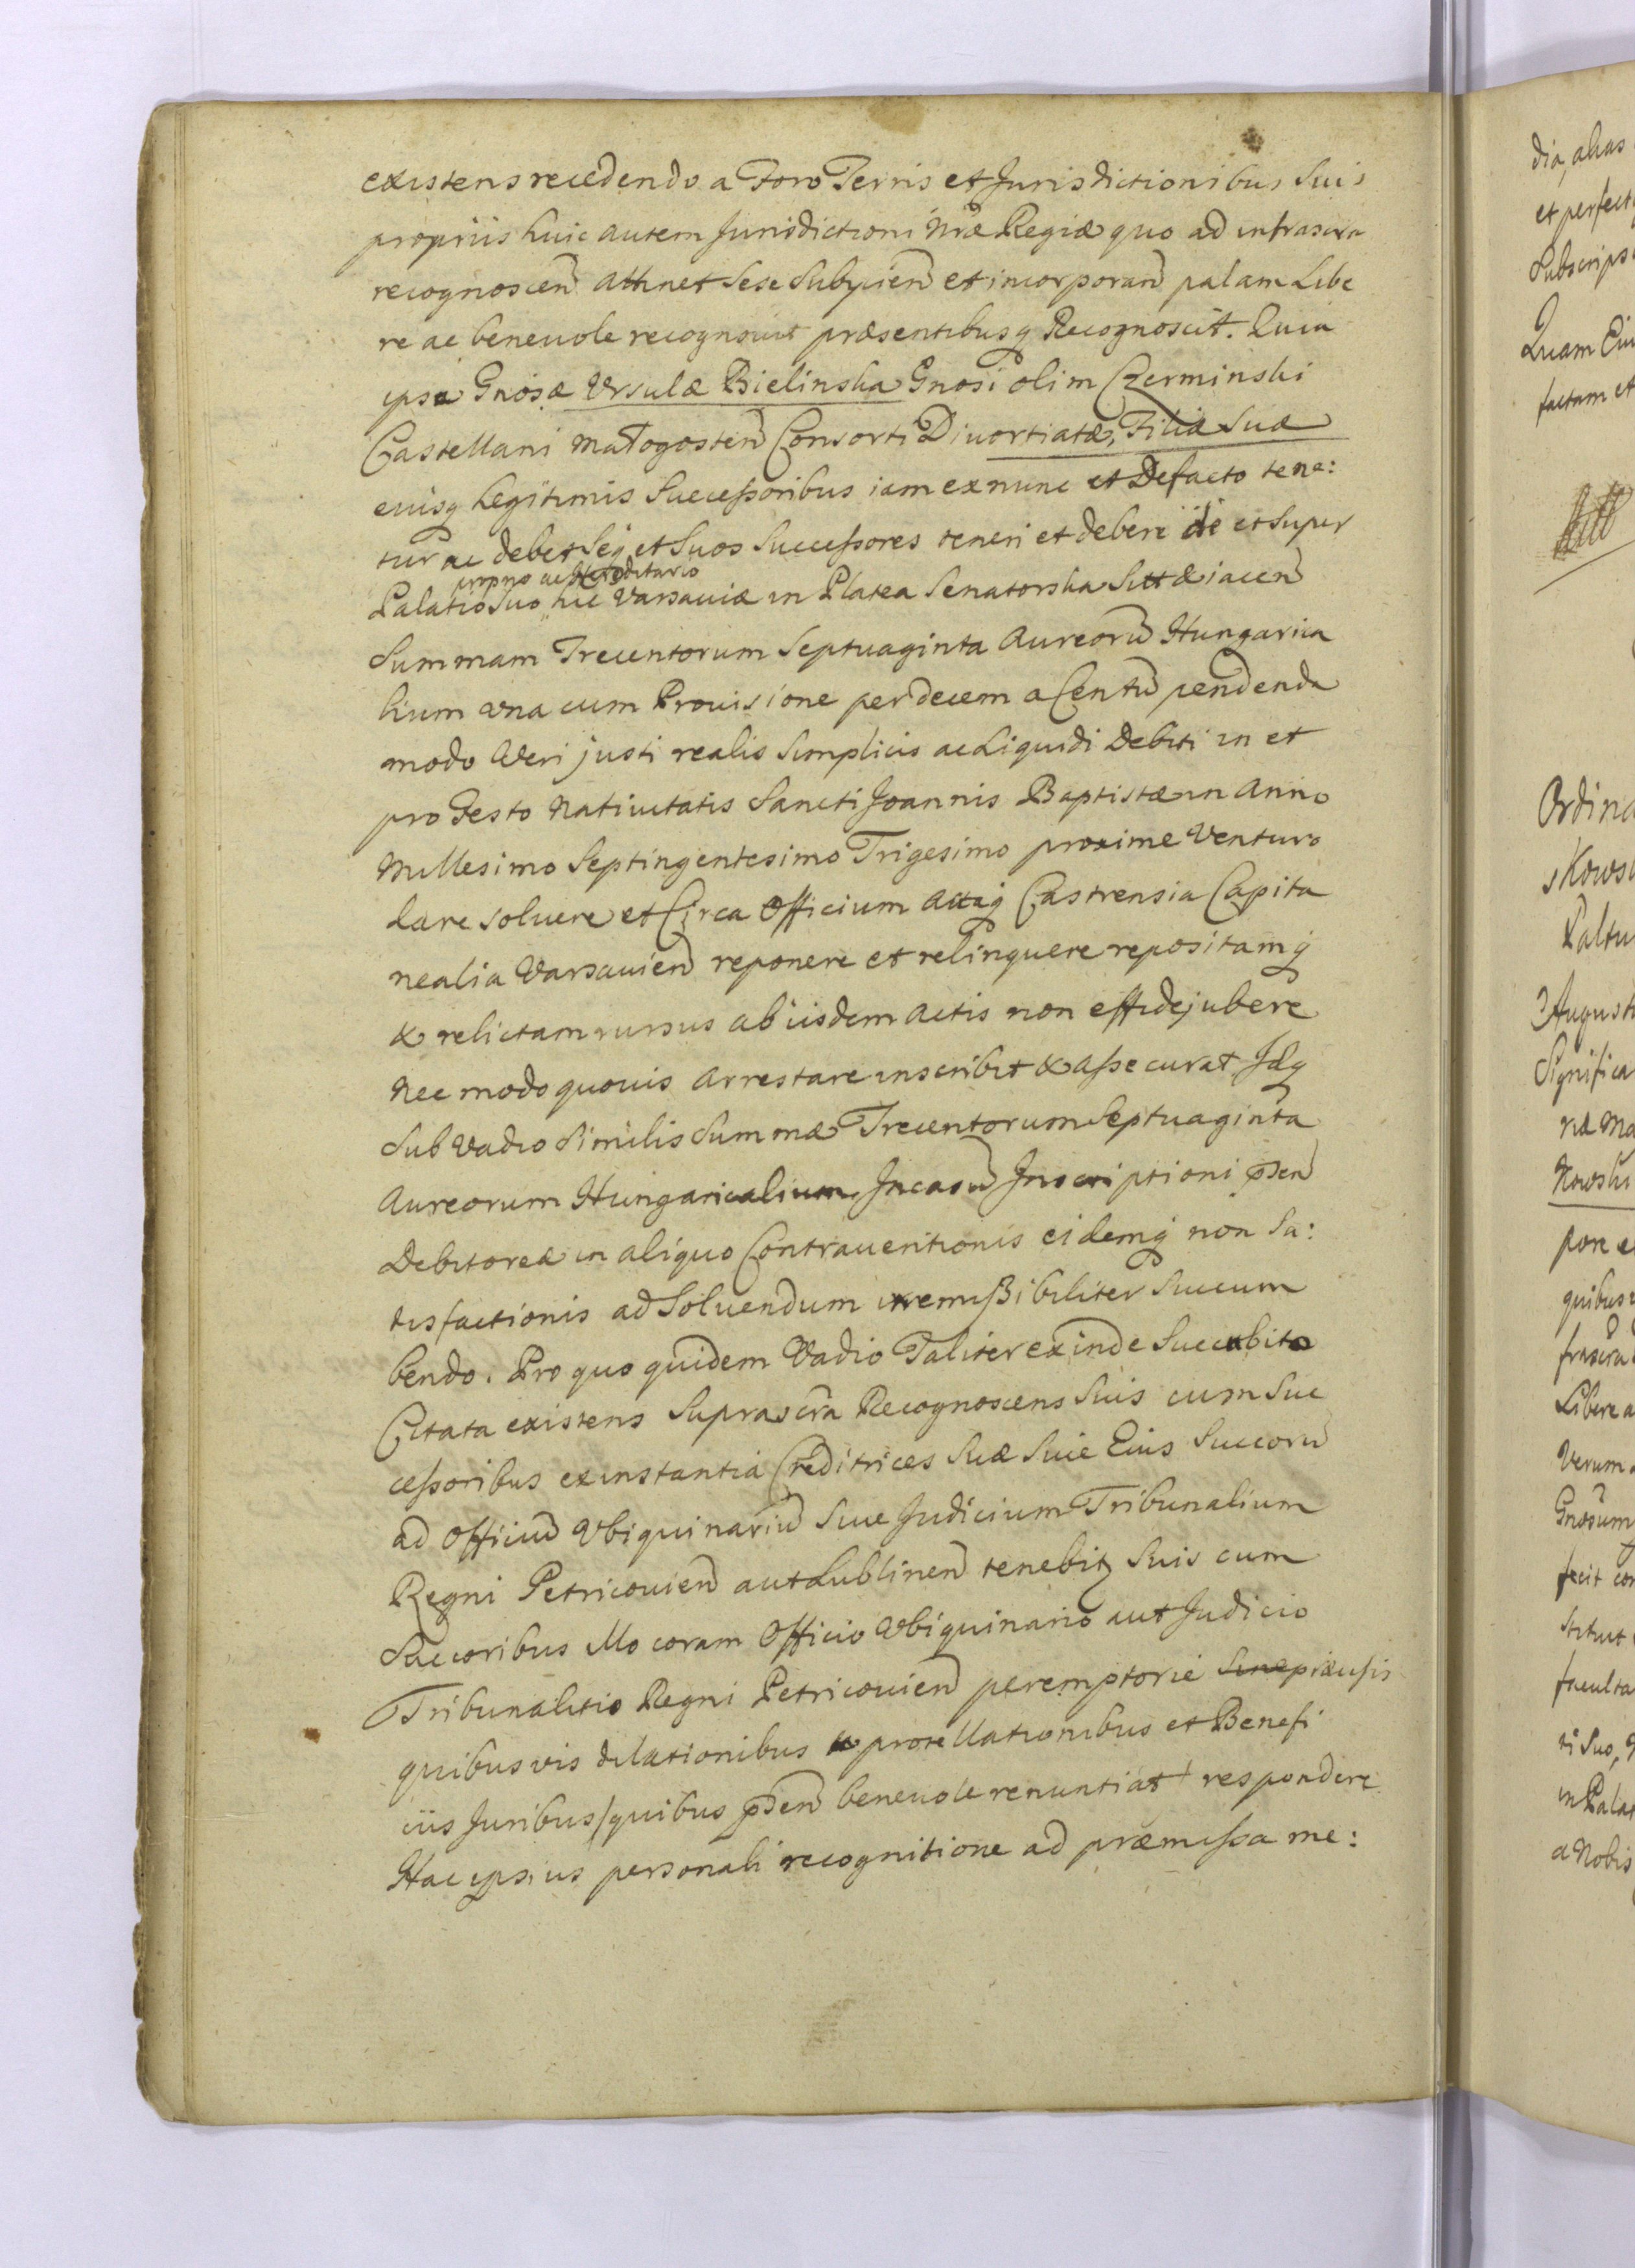 existens recedendo a Foro Terris et Jurisdictionibus Suis
propriis huic autem Jurisdictioni Nræ Regiæ quo ad infrascra
recognoscen attinet Sese Subijcien et incorporan palam Libe
re ac beneuole recognouit præsentibusq Recognoscit. Quia
ipsa Gnosæ Vrsulæ Bielinska Gnosi olim Czerminski
Castellani Małogosten Consorti Diuortiatæ, Filiæ Suæ
eiusq Legitimis Successoribus iam ex nunc et Defacto tene:
tur ac debet Seq et Suos Successores teneri et debere de et Super
proprio ac Hæreditario
Palatio Suo hic Varsauiæ in Platea Senatorska Sitt & iacen
Summam Trecentorum Septuaginta Aureorū Hungarica
lium vna cum Prouisione per decem a Centū pendenda
modo Veri justi realis Simplicis ac Liquidi Debiti in et
pro Festo Natiuitatis Sancti Joannis Baptistæ in Anno
Millesimo Septingentesimo Trigesimo proxime Venturo
dare soluere et Circa Officium Actaq Castrensia Capita
nealia Varsauien reponere et relinquere repositamq
& relictam rursus ab iisdem Actis non effidejubere
Nec modo quouis Arrestare inscribit & assecurat Idq
Sub Vadio Similis Summæ Trecentorum Septuaginta
Aureorum Hungaricalium, In casū Inscriptioni pñen
Debitoreæ in aliquo Contrauentionis eidemq non Sa:
tisfactionis ad Soluendum irremissibiliter Succum
bendo. Pro quo quidem Vadio Taliter exinde Succubito
Citata existens Suprascra Recognoscens Suis cum Suc
cessoribus ex instantia Creditrices Suæ Siue Eius Succorū
ad Officiū Vbiquinariū Siue Judicium Tribunalium
Regni Petricouien aut Lublinen tenebit Suis cum
Succoribus Illo coram Officio Vbiquinario aut Judicio
Tribunalitio Regni Petricouien peremptorie Sine præcisis
quibusvis dilationibus prorellationibus et Benefi
ciis Juribus /quibus pñen beneuole renuntiat/ respondere
Hac ipsius personali recognitione ad præmissa me:
dia, alias
et perfect
Subscrips
Quam Eiu
factam et
Ordina
skows
Paltu
3 Augusti
Significa
næ Ma
Nowski
pore e
quibus
frascra
Libere a
Verum
Gnosum
fecit con
stituit
faculta
ti Suo,
in Palat
a Nobis